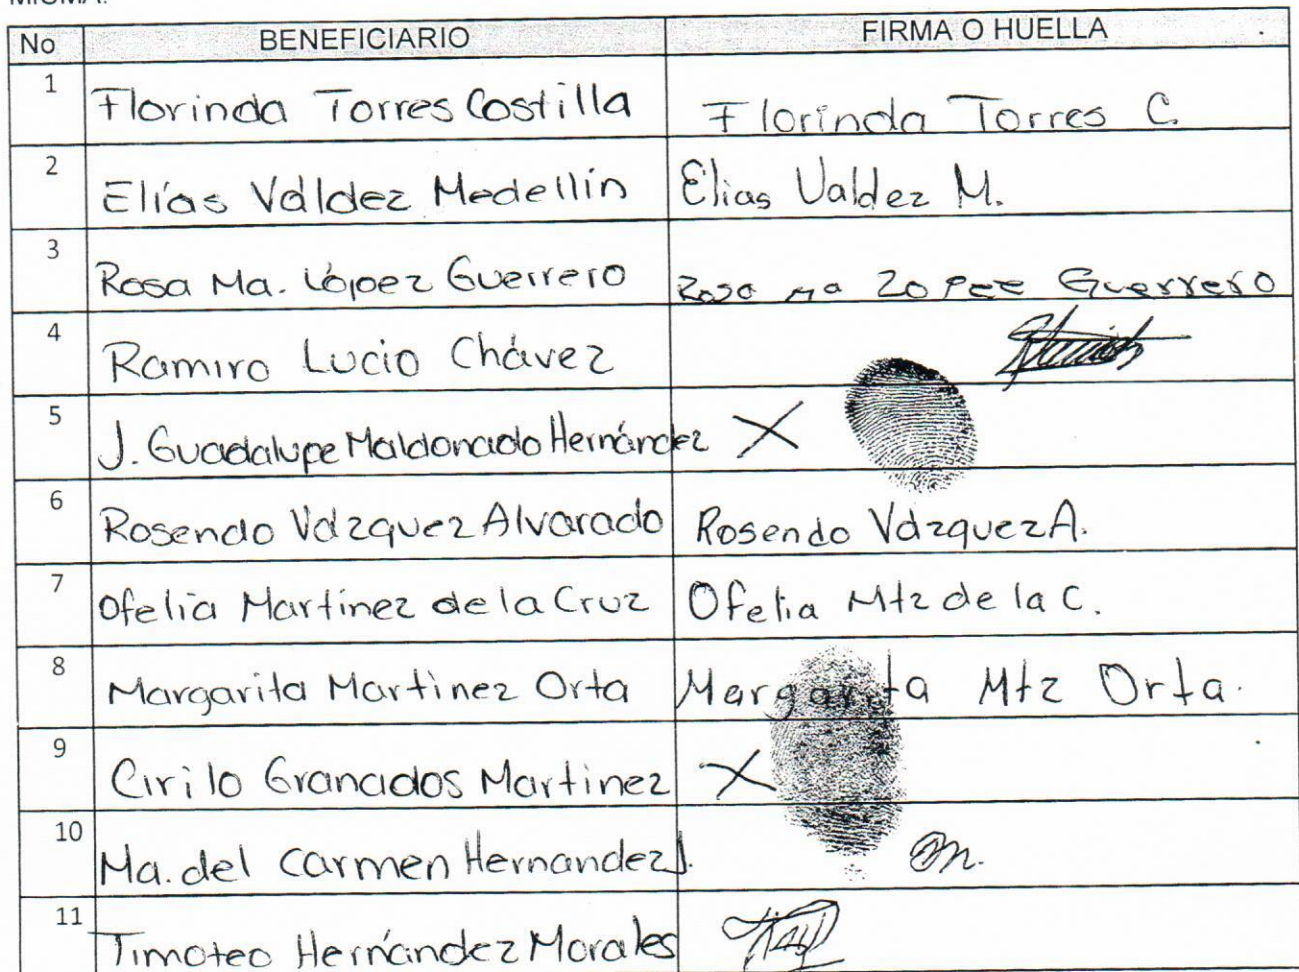 No BENEFICIARIO FIRMA O HUELLA .
1 Florinda Torres Costilla Florinda Torres C.
2 Elías Váldez Medellín Elias Valdez M.
3 Rosa Ma. López Guerrero Rosa Ma Zopez Guerrero
4 Ramiro Lucio Chávez
5 J. Guadalupe Maldonado Hernández X
6 Rosendo Vázquez Alvarado Rosendo Vázquez A.
7 Ofelia Martínez de la Cruz Ofelia Mtz de la C.
8 Margarita Martinez Orta Margarita Mtz Orta.
9 Cirilo Granados Martinez X
10 Ma. del Carmen Hernandez J.
11 Timoteo Hernández Morales